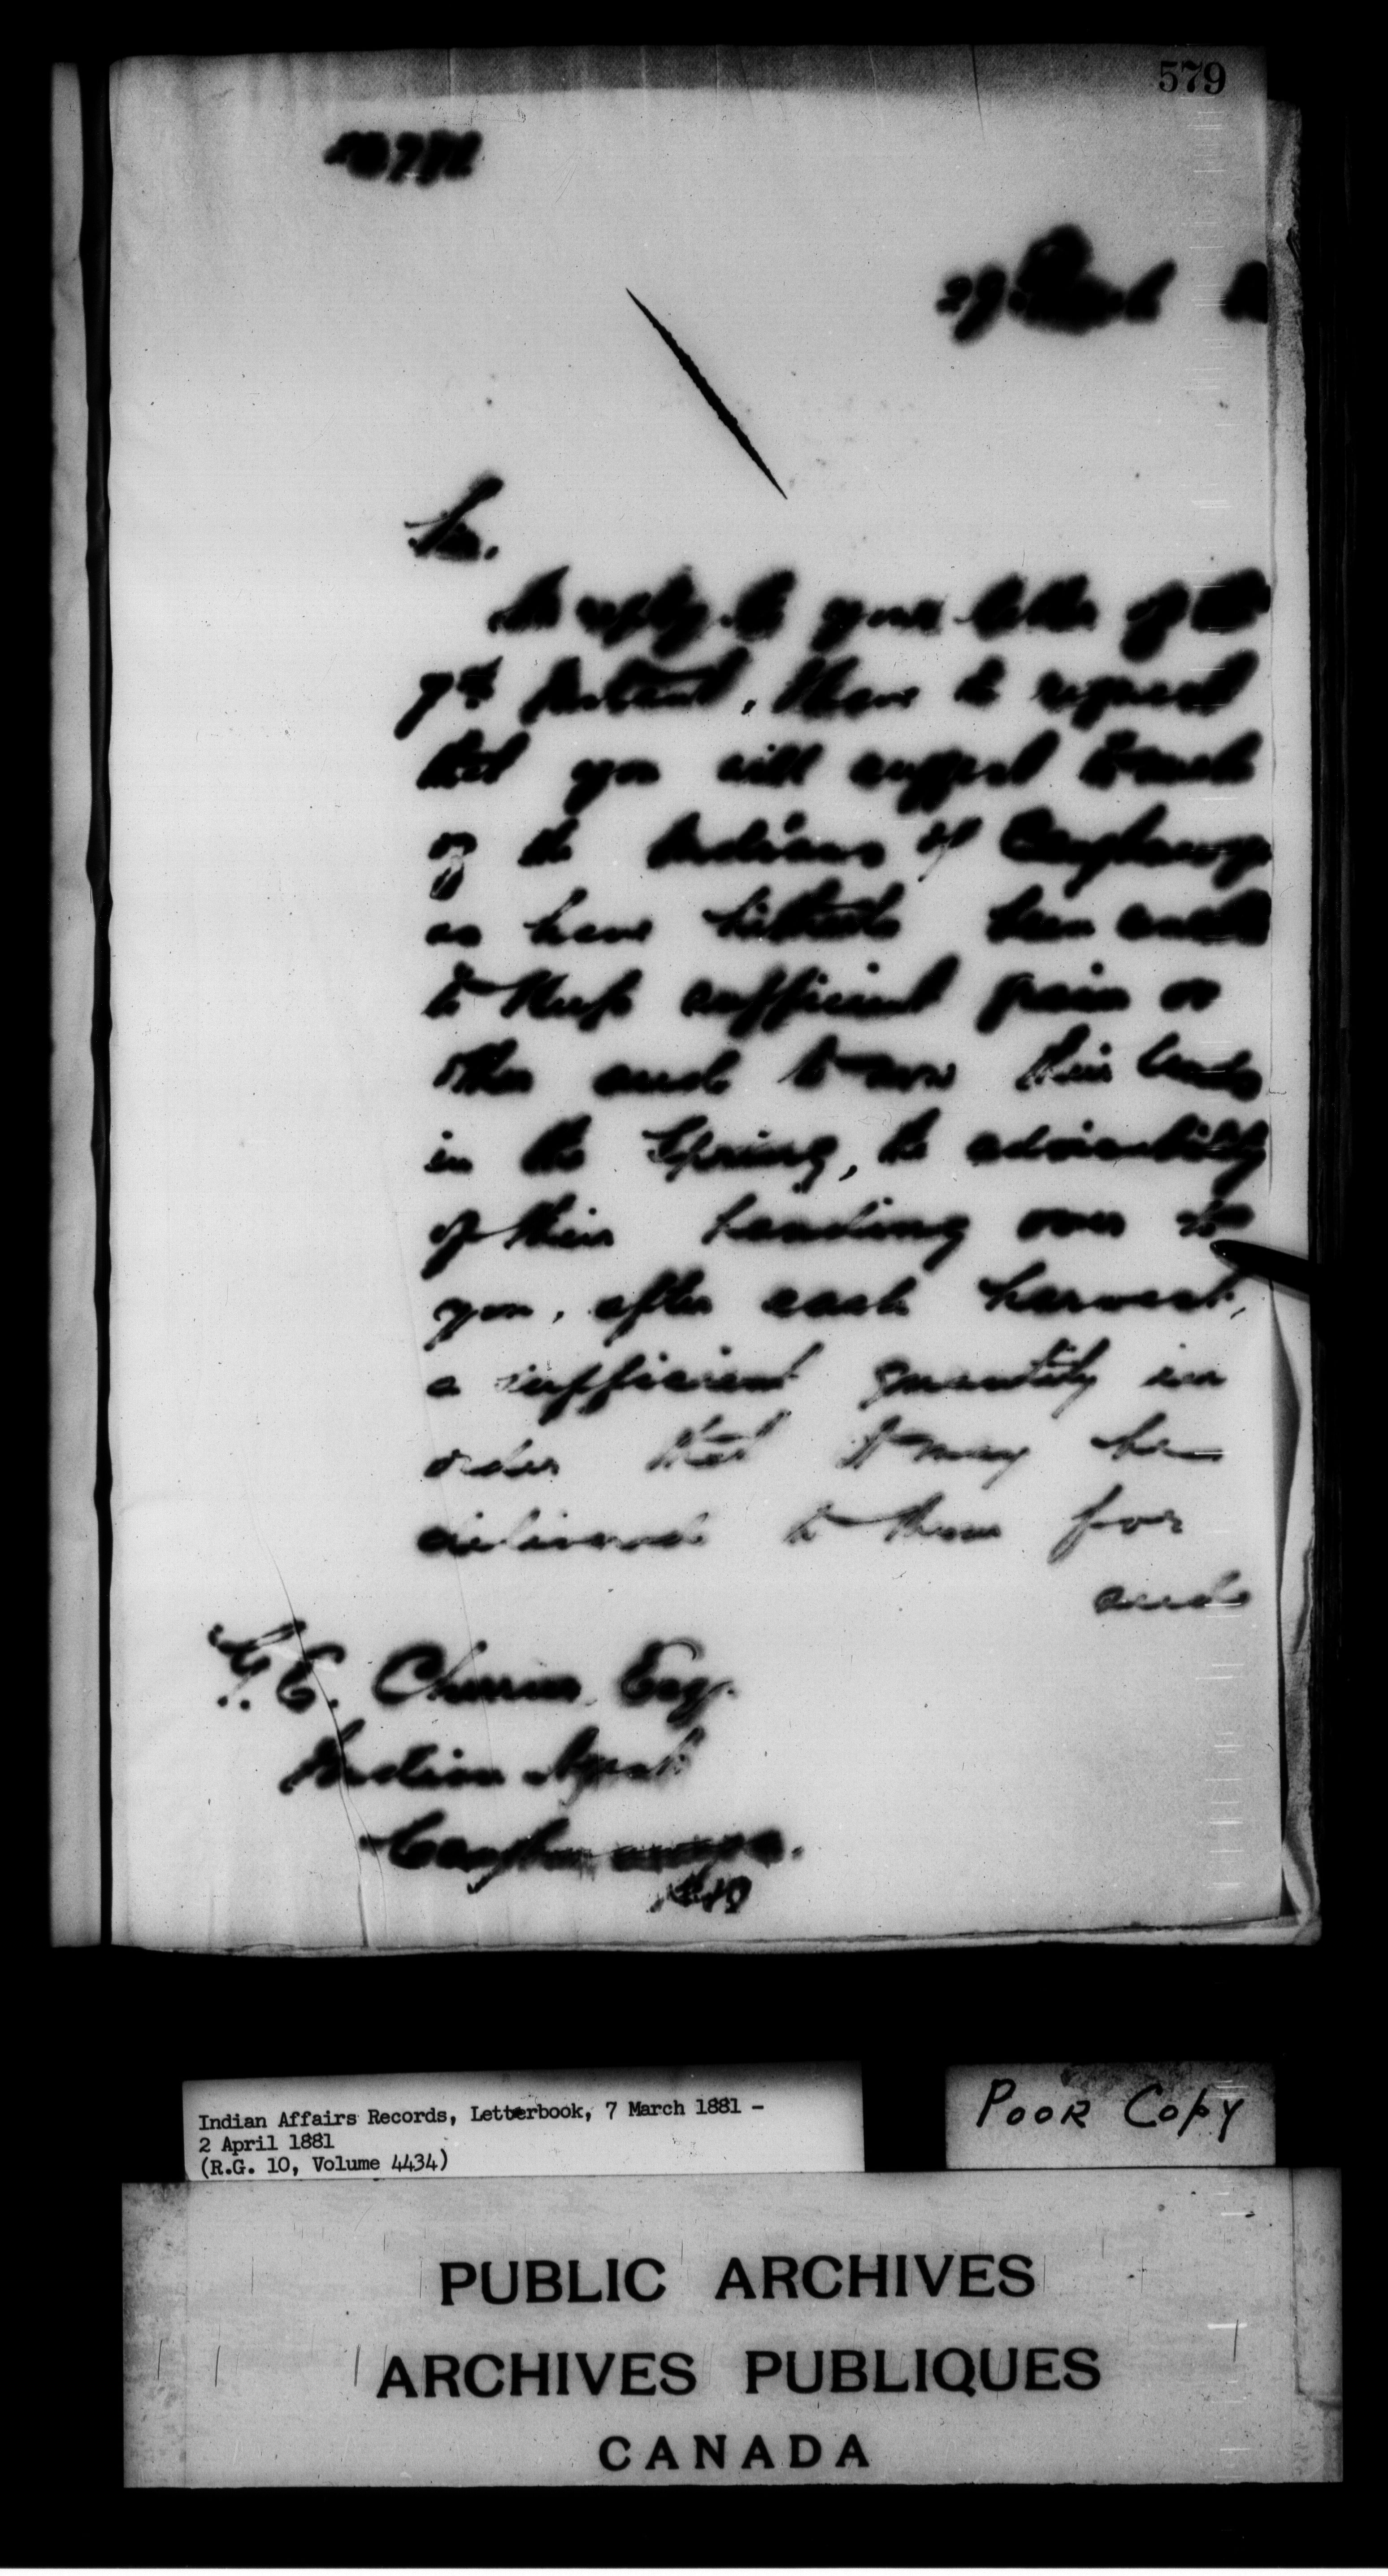 579
29 March
Sir.
In reply to your letter of the
7th Instant, I have to request
that you will suggest to such
of the Indians of Caughnawaga
as have hitherto been unable
to keep sufficient grain or
other seed to sow their lands
in the Spring, the advisability
of their handing over to
you, after each harvest,
a sufficient quantity in
order that it may be
delivered to them for
seed
G. E. Cherrier, Esq.
Indian Agent
Caughnawaga.
Indian Affairs Records, Letterbook, 7 March 1881 -
2 April 1881
(R.G. 10, Volume 4434)
POOR COPY
PUBLIC ARCHIVES
ARCHIVES PUBLIQUES
CANADA